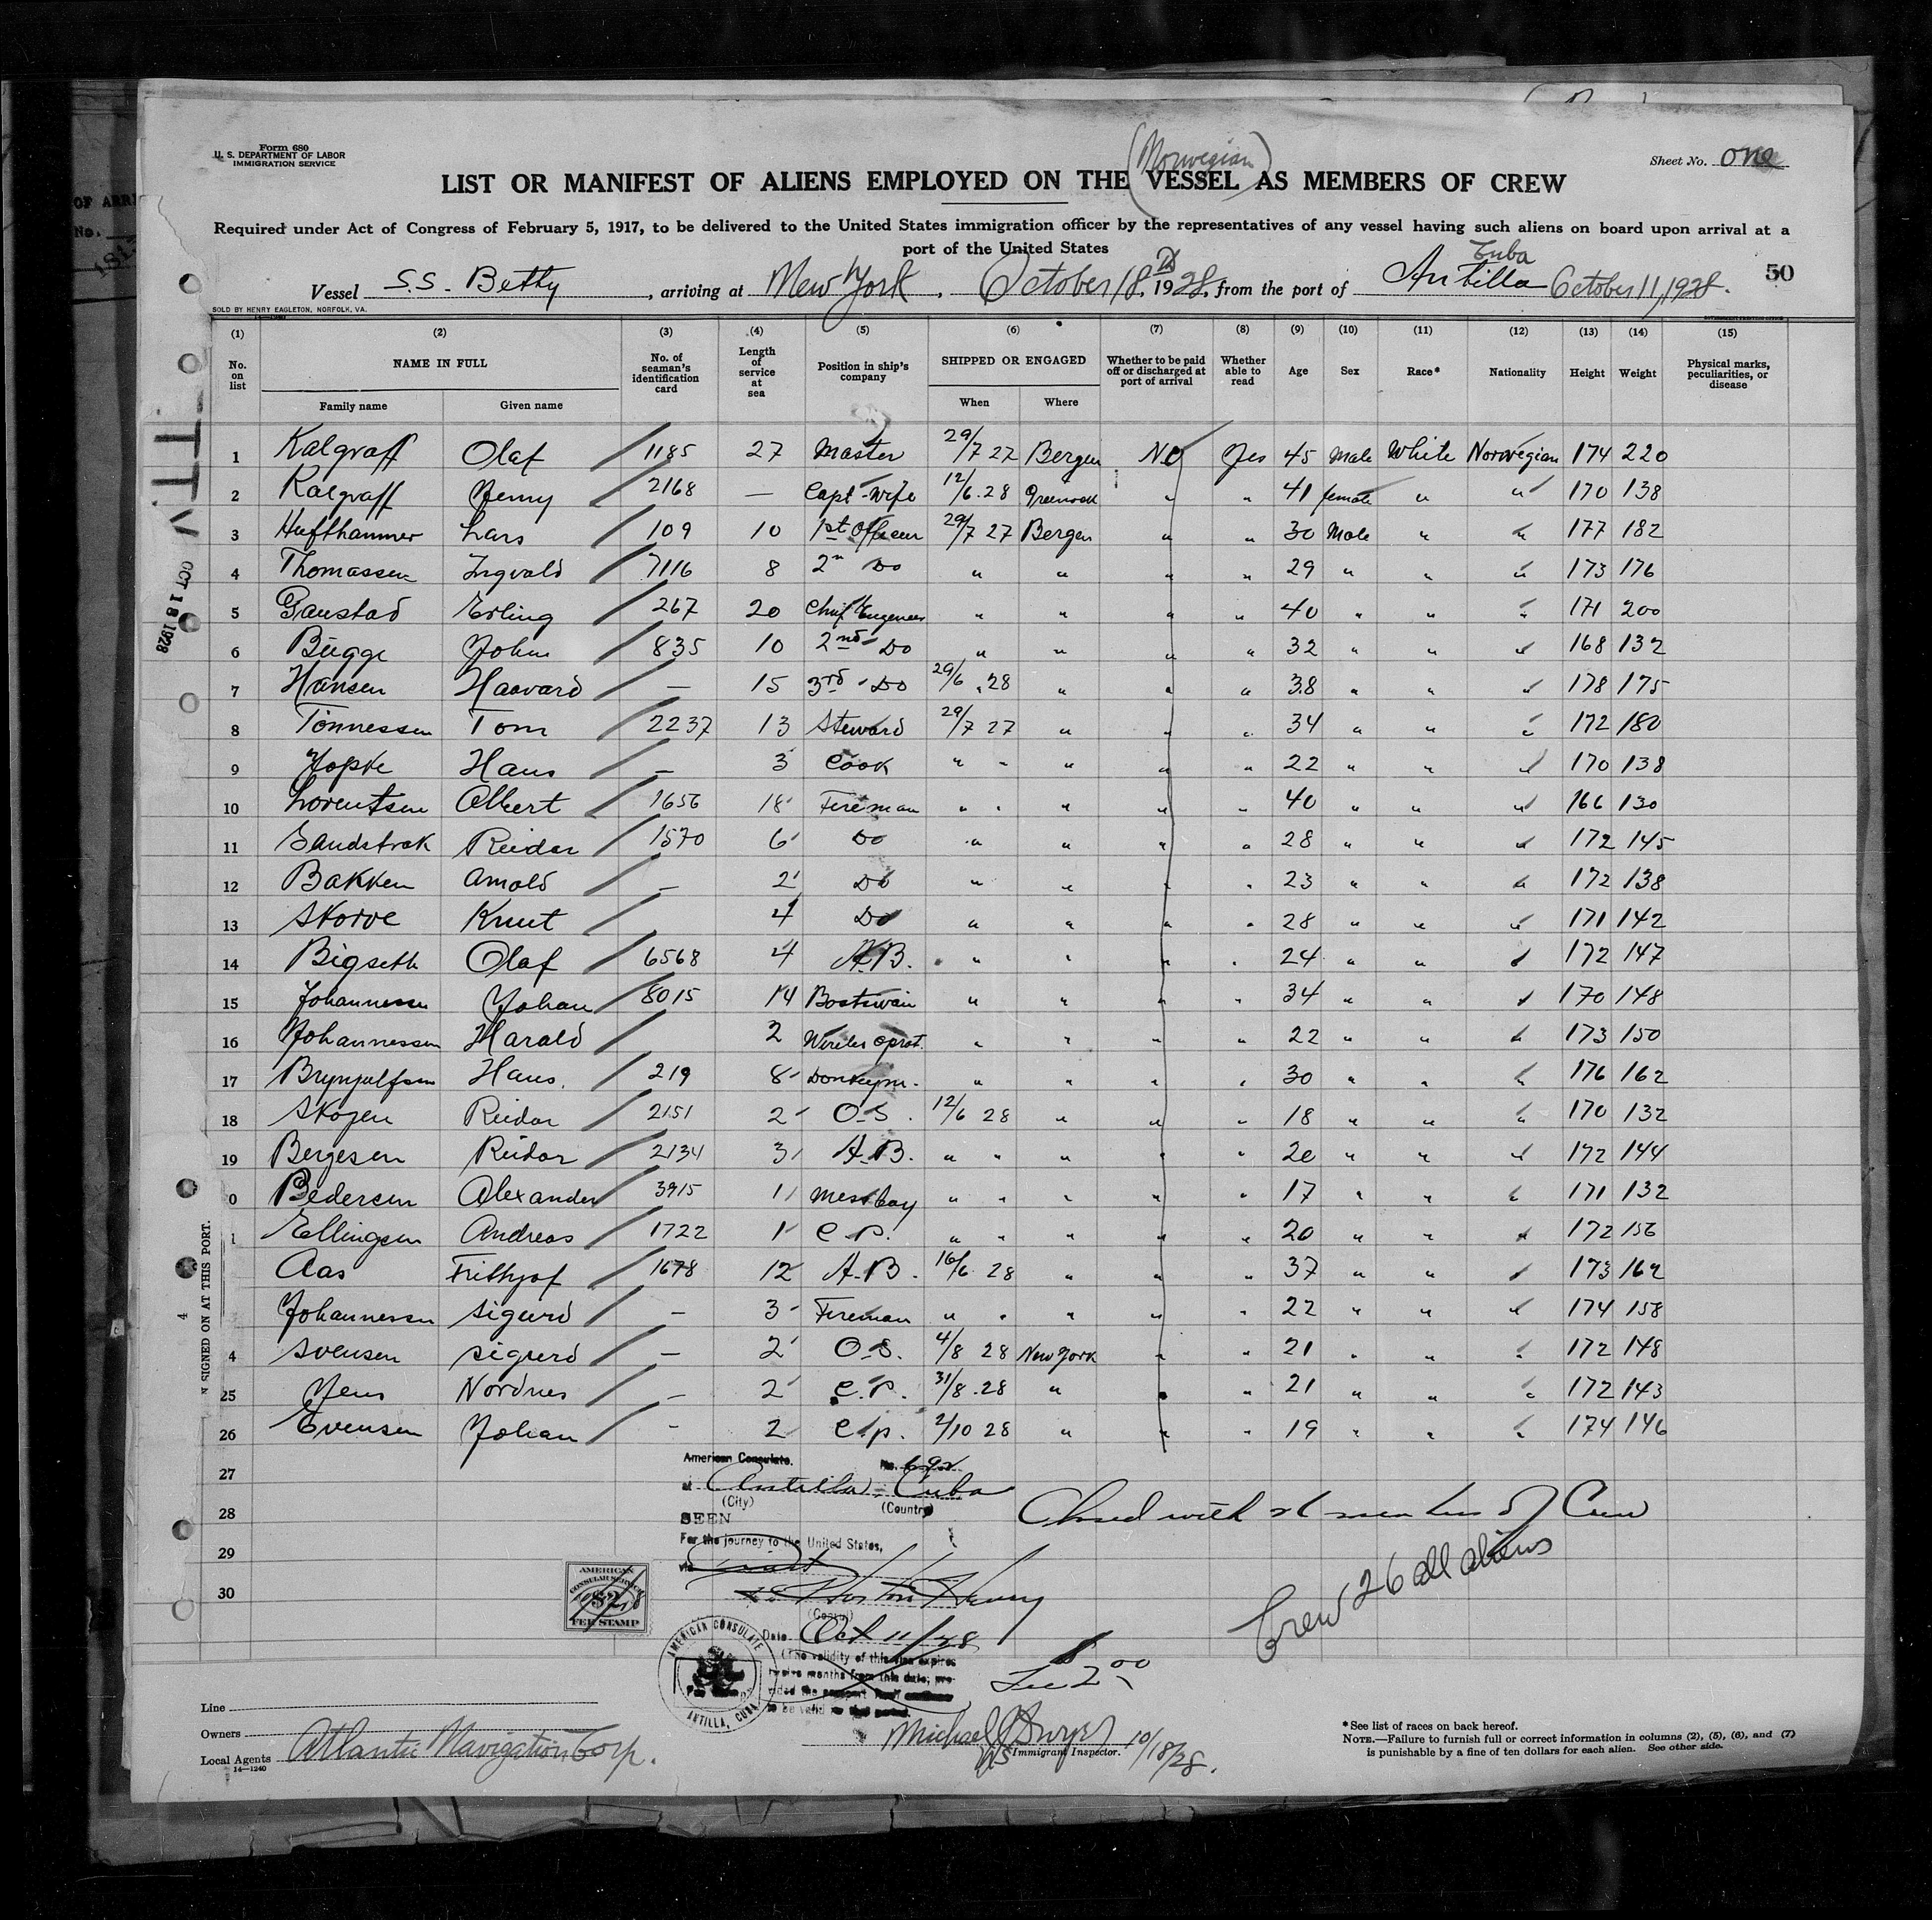 Form 680
U. S. DEPARTMENT OF LABOR
IMMIGRATION SERVICE
(Norwegian)
Sheet No. one
LIST OR MANIFEST OF ALIENS EMPLOYED ON THE VESSEL AS MEMBERS OF CREW
Required under Act of Congress of February 5, 1917, to be delivered to the United States immigration officer by the representatives of any vessel having such aliens on board upon arrival at a
port of the United States
Cuba
Vessel S.S. Betty, arriving at New York, October 18, 1928, from the port of Antilla October 11, 1928.
50
SOLD BY HENRY EAGLETON, NORFOLK, VA.
(1) (2) (3) (4) (5) (6) (7) (8) (9) (10) (11) (12) (13) (14) (15)
No. on list NAME IN FULL No. of seaman's identification card Length of service at sea Position in ship's company SHIPPED OR ENGAGED Whether to be paid off or discharged at port of arrival Whether able to read Age Sex Race* Nationality Height Weight Physical marks, peculiarities, or disease
Family name Given name When Where
1 Kalgraff Olaf 1185 27 Master 29/7 27 Bergen No Yes 45 Male White Norwegian 174 220
2 Kalgraff Jenny 2168 — Capt-wife 12/6.28 Greenock " " 41 female " " 170 138
3 Hufthammer Lars 109 10 1st Officer 29/7 27 Bergen " " 30 Male " " 177 182
4 Thomassen Ingvald 7116 8 2n Do " " " " 29 " " " 173 176
5 Gaustad Erling 267 20 Chief Engeneer " " " " 40 " " " 171 200
6 Bugge John 835 10 2nd Do " " " " 32 " " " 168 132
7 Hansen Haavard — 15 3rd Do 29/6 .28 " " " 38 " " " 178 175
8 Tönnessen Tom 2237 13 Steward 29/7 27 " " " 34 " " " 172 180
9 Hans — 3 Cook " " " " 22 " " " 170 138
10 Lorentsen Albert 1656 18 Fireman " " " " 40 " " " 166 130
11 Sandstrak Reidar 1570 6 Do " " " " 28 " " " 172 145
12 Bakken Arnold — 2 Do " " " " 23 " " " 172 138
13 Skorve Knut 4 Do " " " " 28 " " " 171 142
14 Bigseth Olaf 6568 4 A.B. " " " " 24 " " " 172 147
15 Johannessen Johan 8015 14 Bostwain " " " " 34 " " " 170 148
16 Johannessen Harald 2 Wireles oprat. " " " " 22 " " " 173 150
17 Brynjulfsen Hans. 219 8 Donkeym. " " " " 30 " " " 176 162
18 Skogen Reidar 2151 2 O.S. 12/6 28 " " " 18 " " " 170 132
19 Bergesen Reidar 2134 3 A.B. " " " " 20 " " " 172 144
0 Pedersen Alexander 3915 1 Messboy " " " " 17 " " " 171 132
1 Ellingsen Andreas 1722 1 C.P. " " " " 20 " " " 172 156
Aas Frithjof 1678 12 A.B. 16/6 28 " " " 37 " " " 173 162
Johannessen Sigurd — 3 Fireman " " " " 22 " " " 174 158
4 Svensen Sigurd — 2 O.S. 4/8 28 New York " " 21 " " " 172 148
25 Jens Nordnes — 2 C.P. 31/8.28 " " " 21 " " " 172 143
26 Evensen Johan - 2 C.p. 2/10 28 " " " 19 " " " 174 146
27
28
29
30
American Consulate. No. 692
at Antilla - Cuba
(City) (Country)
SEEN
For the journey to the United States,
via
(Consul)
Date Oct 11/28
(The validity of this visa expires
twelve months from this date; pro-
vided the passport itself continues
to be valid for that period.
Closed with 26 members of Crew
Crew 26 all aliens
AMERICAN
CONSULAR SERVICE
$2
FEE STAMP
AMERICAN CONSULATE
ANTILLA, CUBA
Fee 2.00
Line
Owners
Local Agents Atlantic Navigation Corp.
14—1240
Michael J Dwyer 10/18/28.
Immigrant Inspector.
*See list of races on back hereof.
NOTE.—Failure to furnish full or correct information in columns (2), (5), (6), and (7)
is punishable by a fine of ten dollars for each alien. See other side.
OCT 18 1928
N SIGNED ON AT THIS PORT.
4
OF ARRI
No.